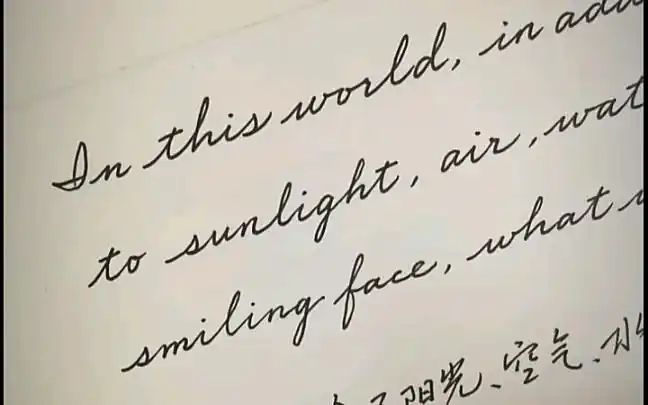 In this world, in
to sunlight, air,
smiling face, what
阳光、空气、水